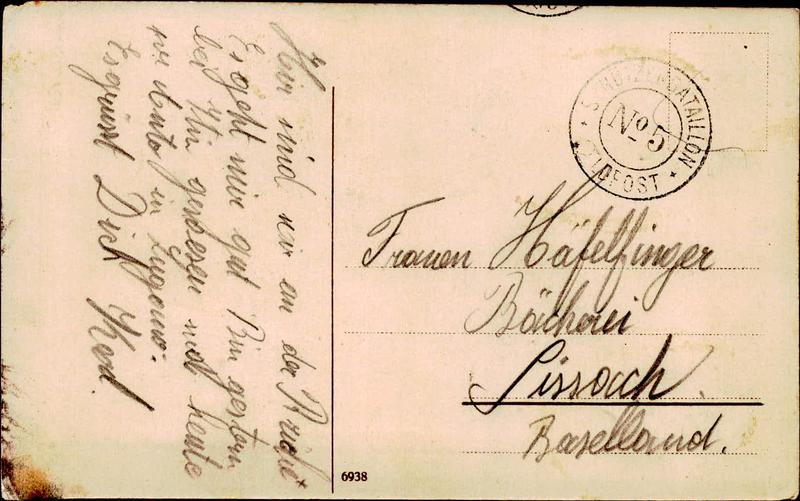 Hier sind wir an der Reihe
Es geht mir gut Bin gestern
bei Ihr gewesen und heute
in Lugano.
Es grüsst Dich
SCHÜTZENBATAILLON
No 5
FELDPOST
Frauen Häfelfinger
Bäckerei
Sissach.
Baselland.
6938